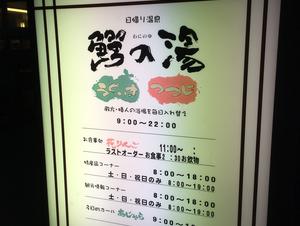 日帰り温泉
わにのゆ
鰐の湯
つつじ
殿方・婦人の浴場を毎日入れ替え
9:00～22:00
お食事処 花りんご 11:00～
ラストオーダー お食事2 :30お飲物
特産品コーナー 8:00～18:00
土・日・祝日のみ 8:00～19:00
観光情報コーナー 8:00～18:00
土・日・祝日のみ 8:00～19:00
多目的ホール
9:00～